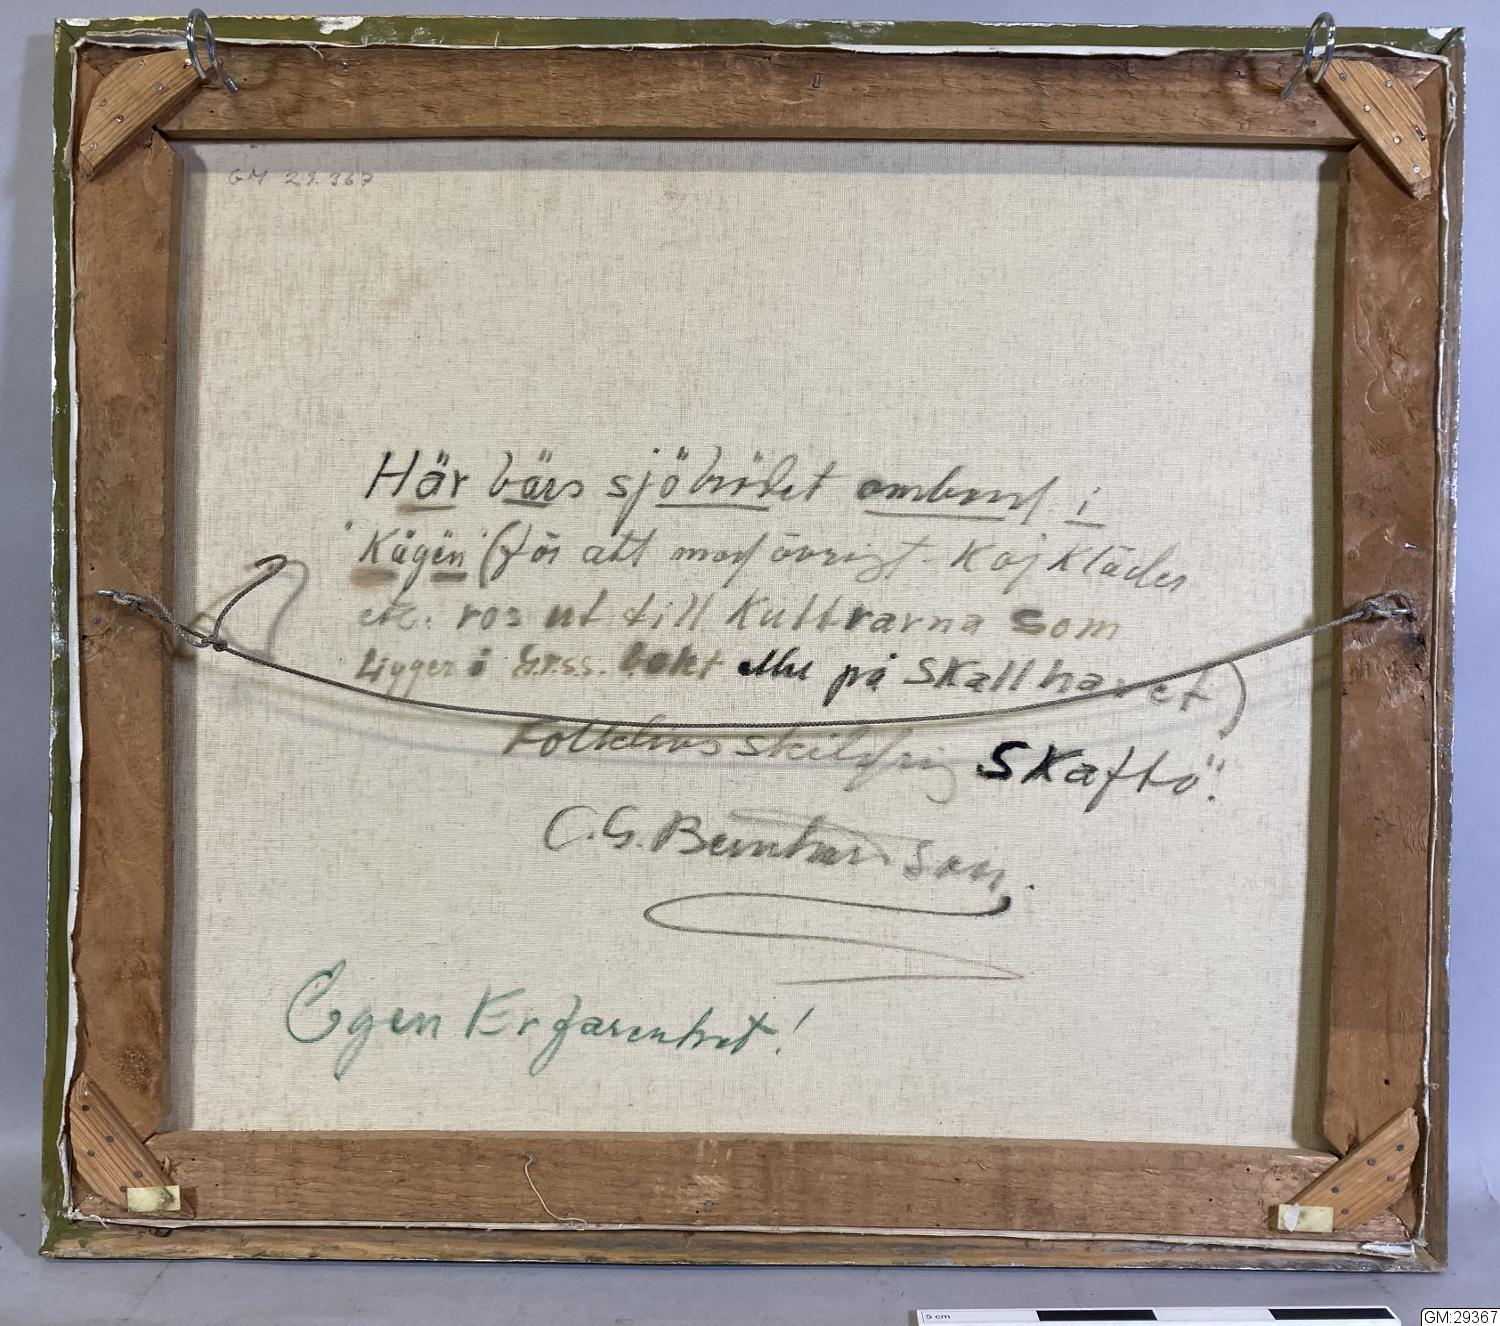 GM 29.367
Här bärs sjöbrödet ombord i
"Kågen" (för att med övrigt - Kojkläder
etc. ros ut till Kuttrarna som
Ligger i på Skallhavet)
Folklivsskildring Skaftö"!
C.G. Bernhardson.
Egen Erfarenhet!
5 cm
GM:29367